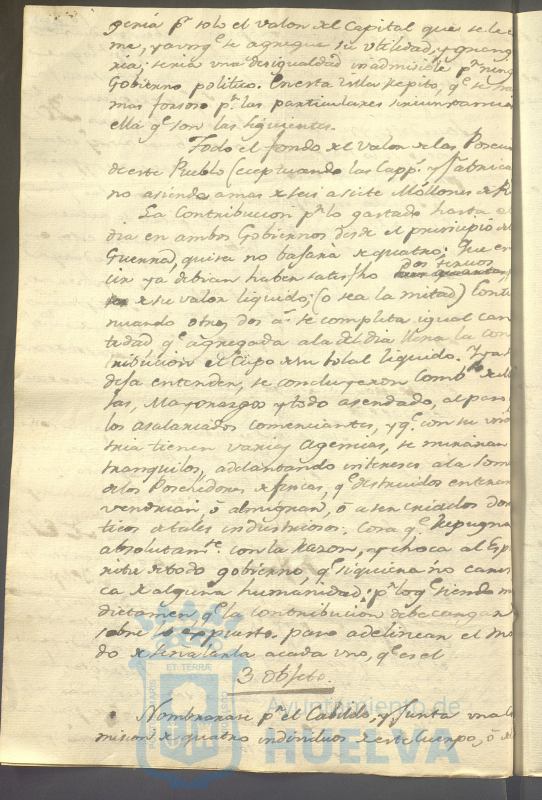 p.r solo el valor del Capital que se le
me, y aunq.e se agregue su utilidad, y
ria; seria una desigualdad inadmisible p.a
Gobierno politico. En esta Villa repito, q.e se
mas forsoso p.r las particulares
ella q.e son las siguientes.
Todo el fondo del Valor de las
de este Pueblo (exeptuando las Capp.s y Fabrica
no asiende a mas de seis a siete Millones de R
La Contribucion p.r lo gastado hasta el
dia en ambos Gobiernos desde el principio de
Guerra, quisa no bajará de quatro: Que
cir ya debian haber satisfho dos tercios
de su valor liquido; (o sea la mitad) Conti
nuando otros dos a.s se completa igual can
tidad q.e agregada a la del dia llena la con
tribucion el Cupo de un total liquido. Y
desa entender, se concluyeron
Mayorazgos y todo asendado, al paso
los asalariados comerciantes, y q.e con su
stria tienen varias agencias, se mirarian
tranquilos, adelantando intereses a la som
de los Poschedores de fincas, q.e destruidos
vendrian, ó a ser criados dom
ticos de tales industriosos: cosa q.e repugna
absolutam.te con la Razon, y choca al Esp
ritu de todo gobierno, q.e siquiera no cares
ca de alguna humanidad; p.r lo q.e siendo m
dictamen q.e la contribucion debe cargar
sobre lo expuesto. paso a delinear el mo
do de señalarla a cada uno, q.e es el
3.. Obgeto.
Nombrarase p.r el Cabildo, y Junta una
mision de quatro individuos de este Cuerpo, ó
ET TERRÆ
Ayuntamiento de
HUELVA